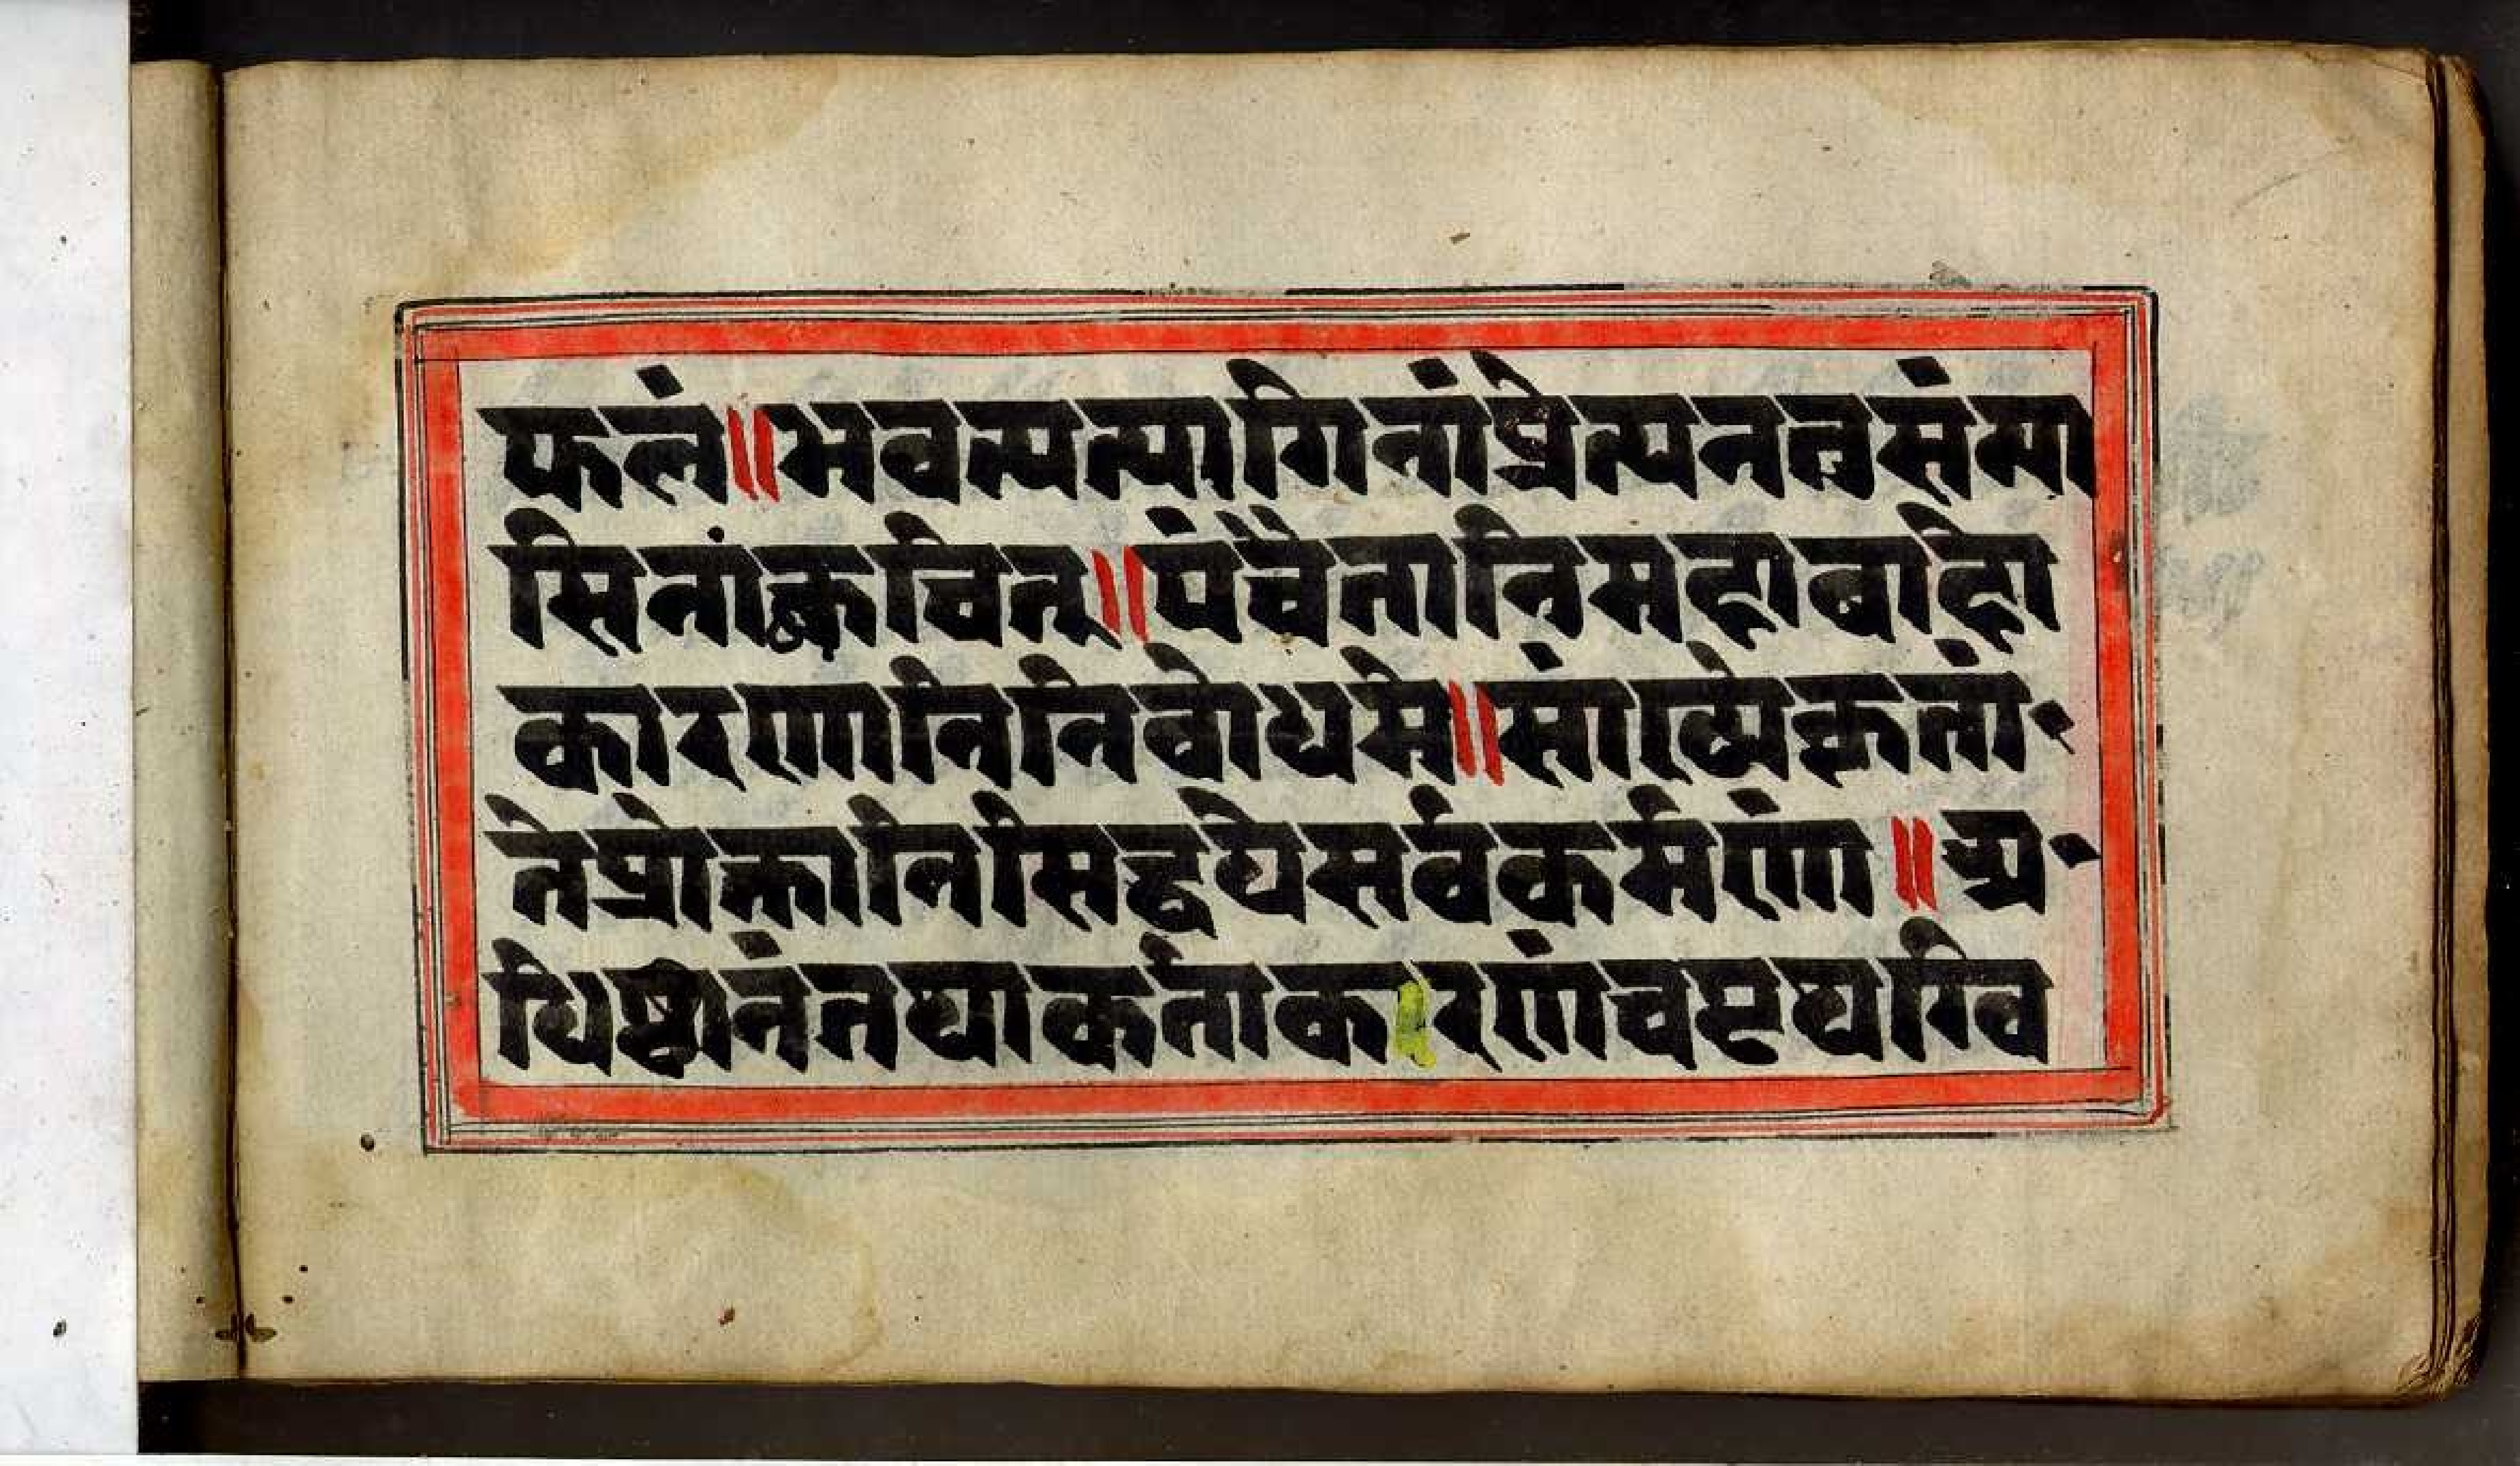 फलं॥भवत्यत्यागिनांप्रेत्यनतुसंन्या
सिनांक्वचित्॥पंचैतानिमहाबाहो
कारणानिनिवोधमे॥सांख्येकृतां
तेप्रोक्तानिसिद्धयेसर्वकर्मणां॥अ
धिष्ठानंतथाकर्ताकरणंचपृथग्वि